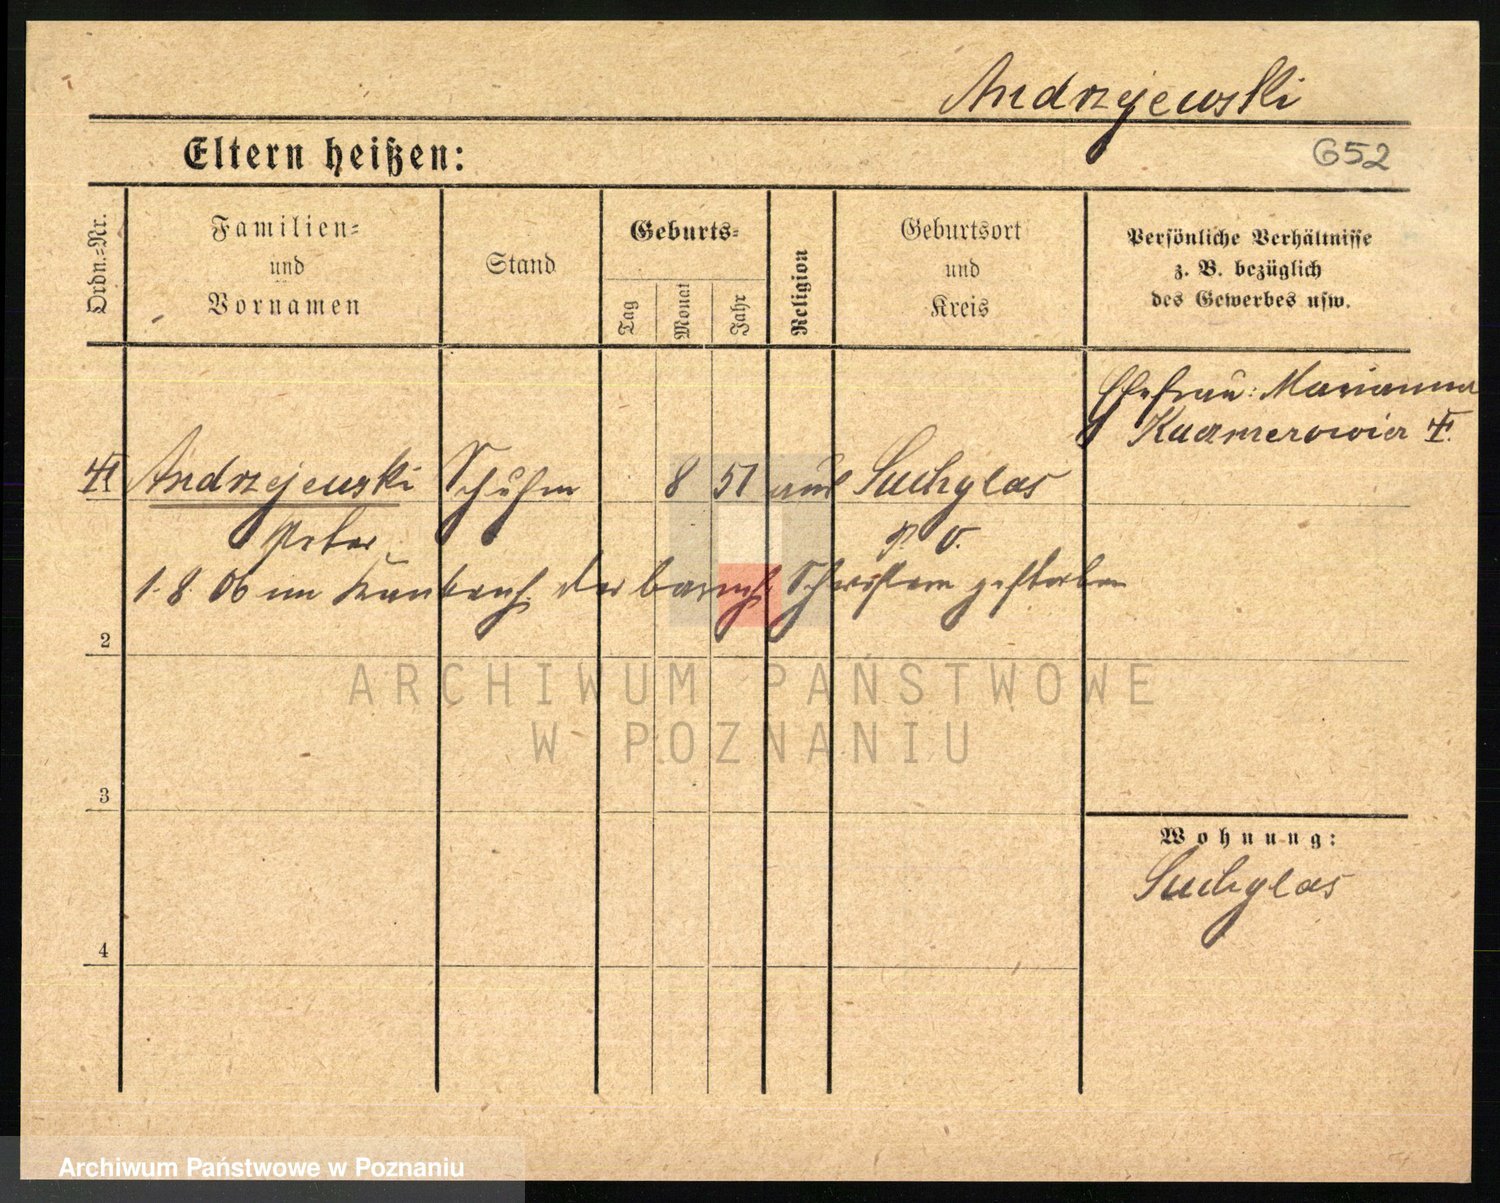 Andrzejewski
Eltern heißen:
652
Ordn.-Nr.
Familien-
und
Vornamen
Stand
Geburts-
Tag
Monat
Jahr
Religion
Geburtsort
und
Kreis
Persönliche Verhältnisse
z. B. bezüglich
des Gewerbes usw.
Ehefrau: Marianna
Andrzejewski Schuhm 8 51 Suchylas
Peter P. O.
1. 8. 06 im Krankenh. der barmh. Schwestern gestorben
2
3
Wohnung:
Suchylas
4
ARCHIWUM PAŃSTWOWE
W POZNANIU
Archiwum Państwowe w Poznaniu